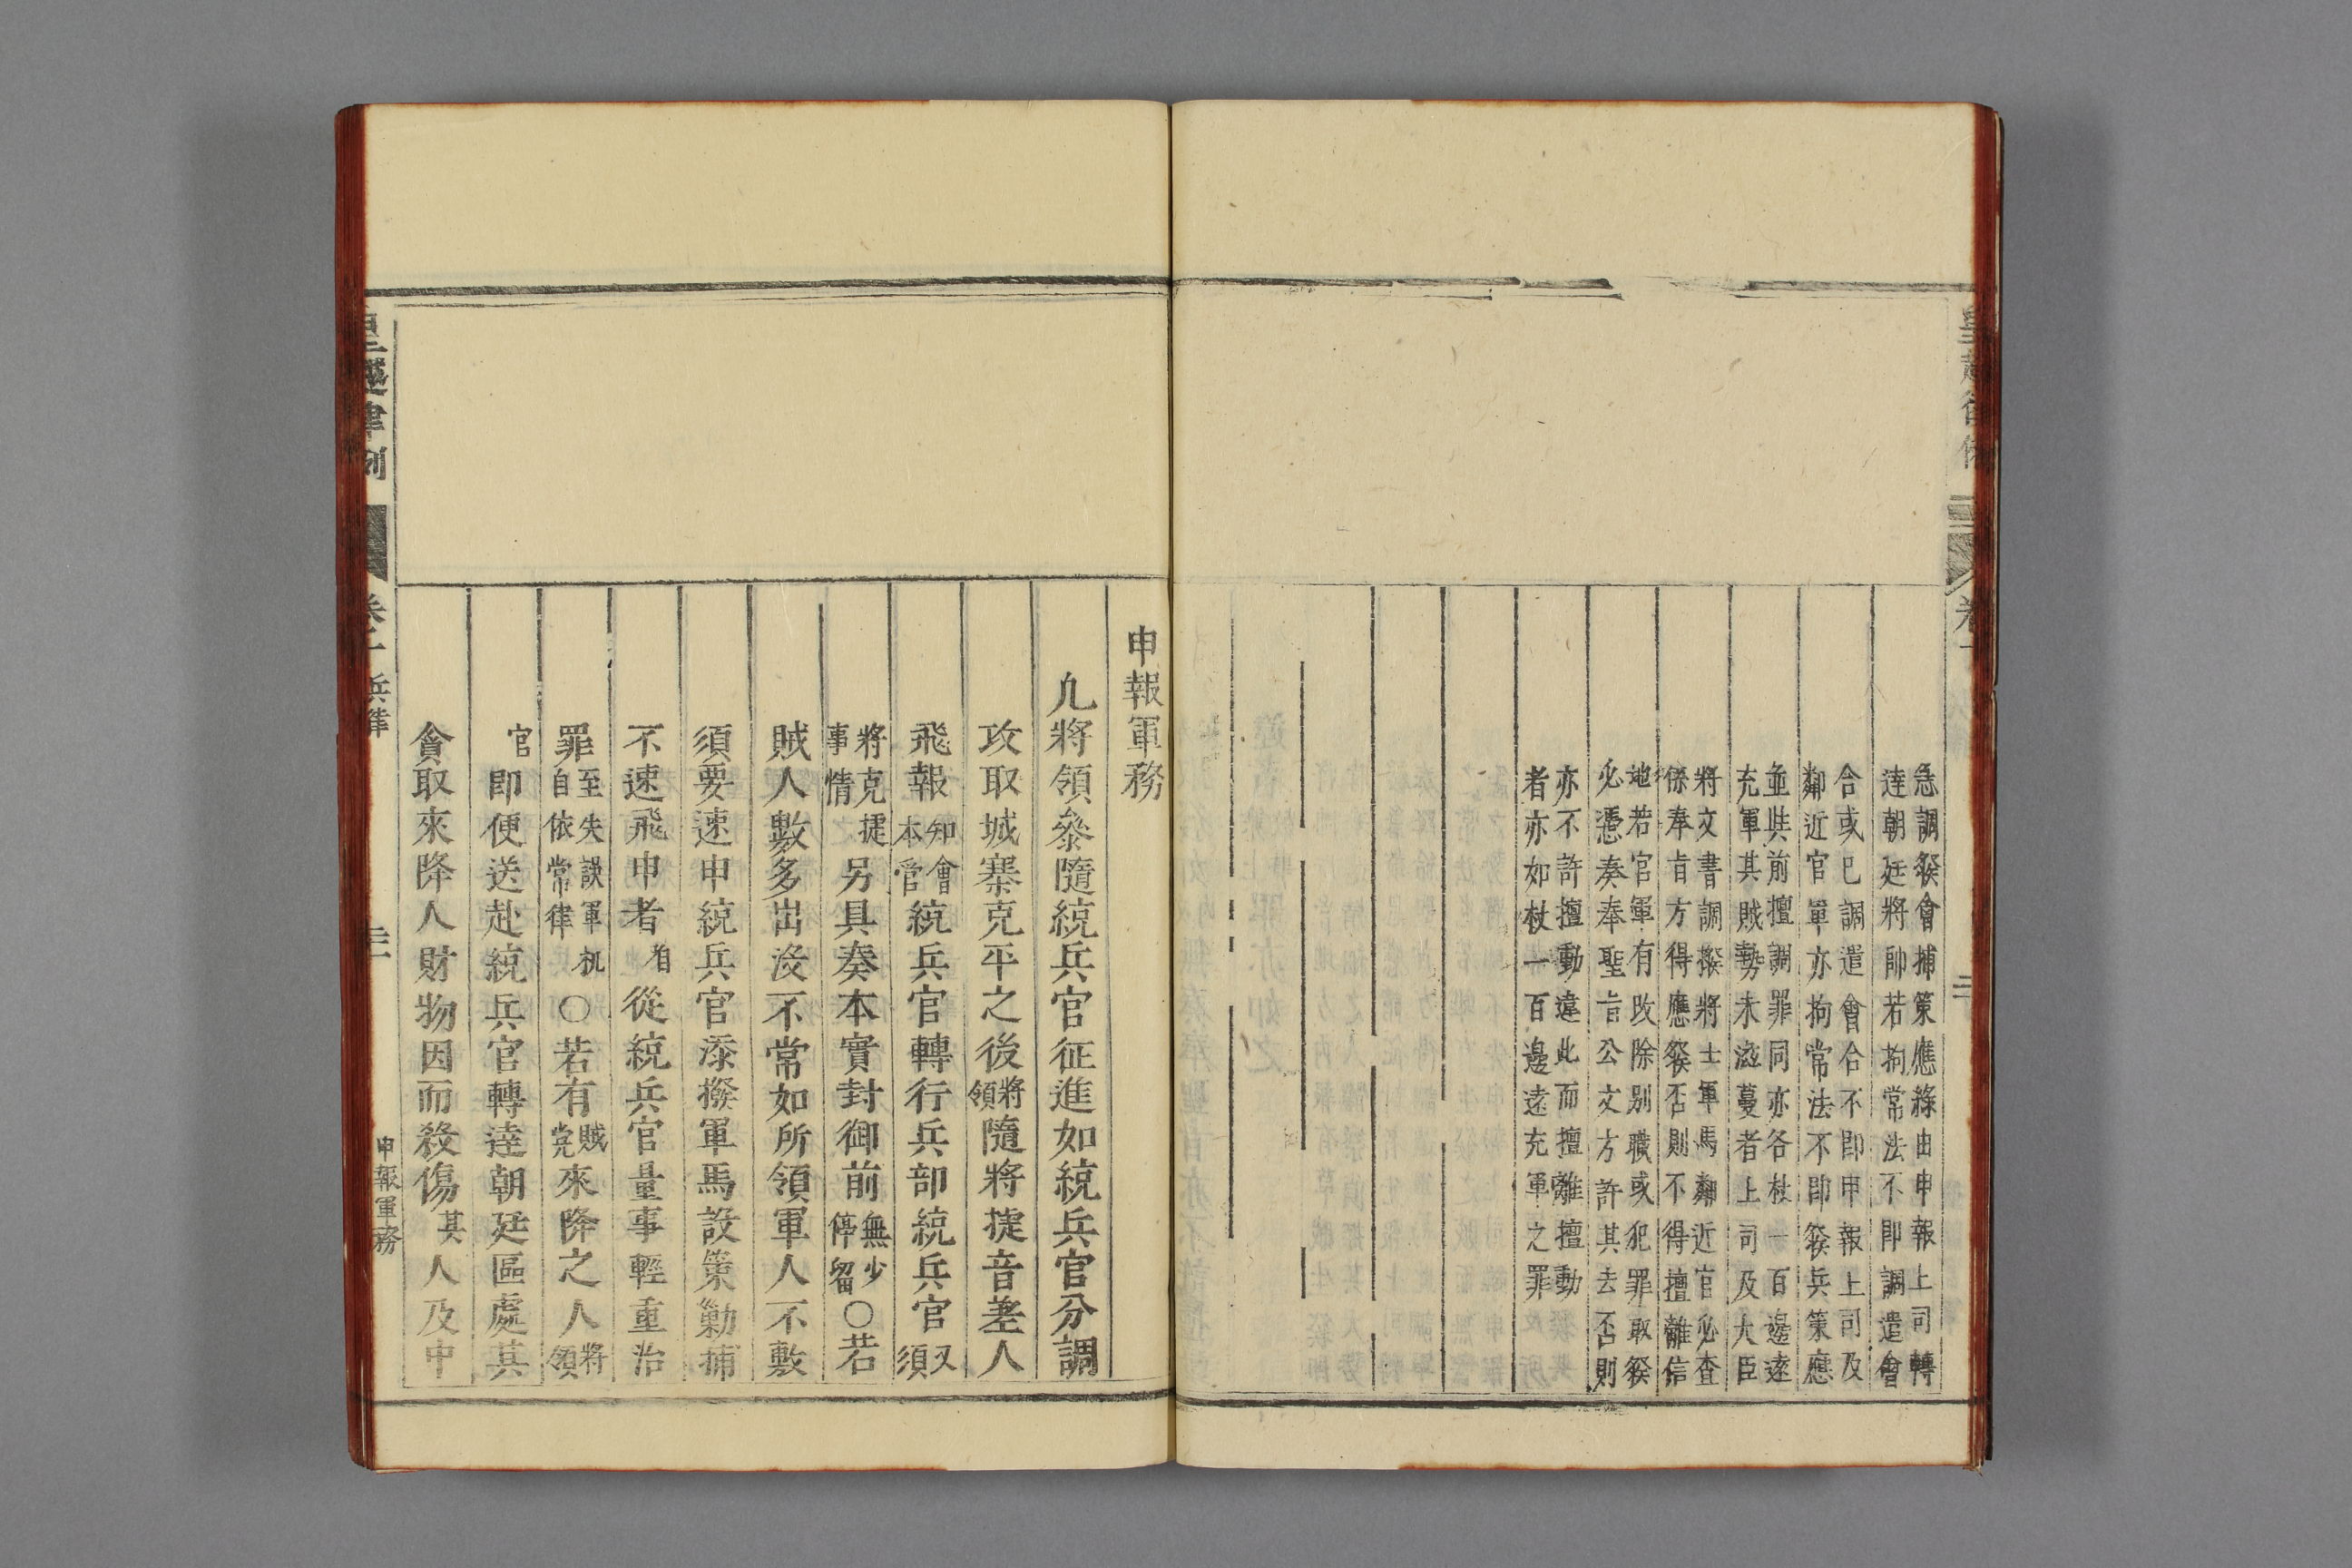 急調發會捕策應綠由申報上司轉
達朝廷將帥若拘常法不即調遣會
合或已調遣會合不即申報上司及
鄰近官軍亦拘常法不即發兵策應
並與前擅調罪同亦各杖一百邊遠
充軍其賊勢未滋蔓者上司及大臣
將文書調撥將士軍馬鄰近官必查
係奉旨方得應發否則不得擅離信
地若官軍有改除別職或犯罪取發
必憑奏奉聖旨公文方許其去否則
亦不許擅動違此而擅離擅動
者亦如杖一百邊遠充軍之罪
申報軍務
凢將領叅隨統兵官征進如統兵官分調
攻取城寨克平之後將領隨將捷音差人
飛報知會本官統兵官轉行兵部統兵官又須
將克捷事情另具奏本實封御前無少停留〇若
賊人數多出没不常如所領軍人不敷
須要速申統兵官添撥軍馬設策勦捕
不速飛申者聽從統兵官量事輕重治
罪至失誤軍机自依常律〇若有賊党來降之人將領
官即便送赴統兵官轉逹朝廷區處其
貪取來降人財物因而殺傷其人及中
皇越律例
卷十
兵律
申報軍務